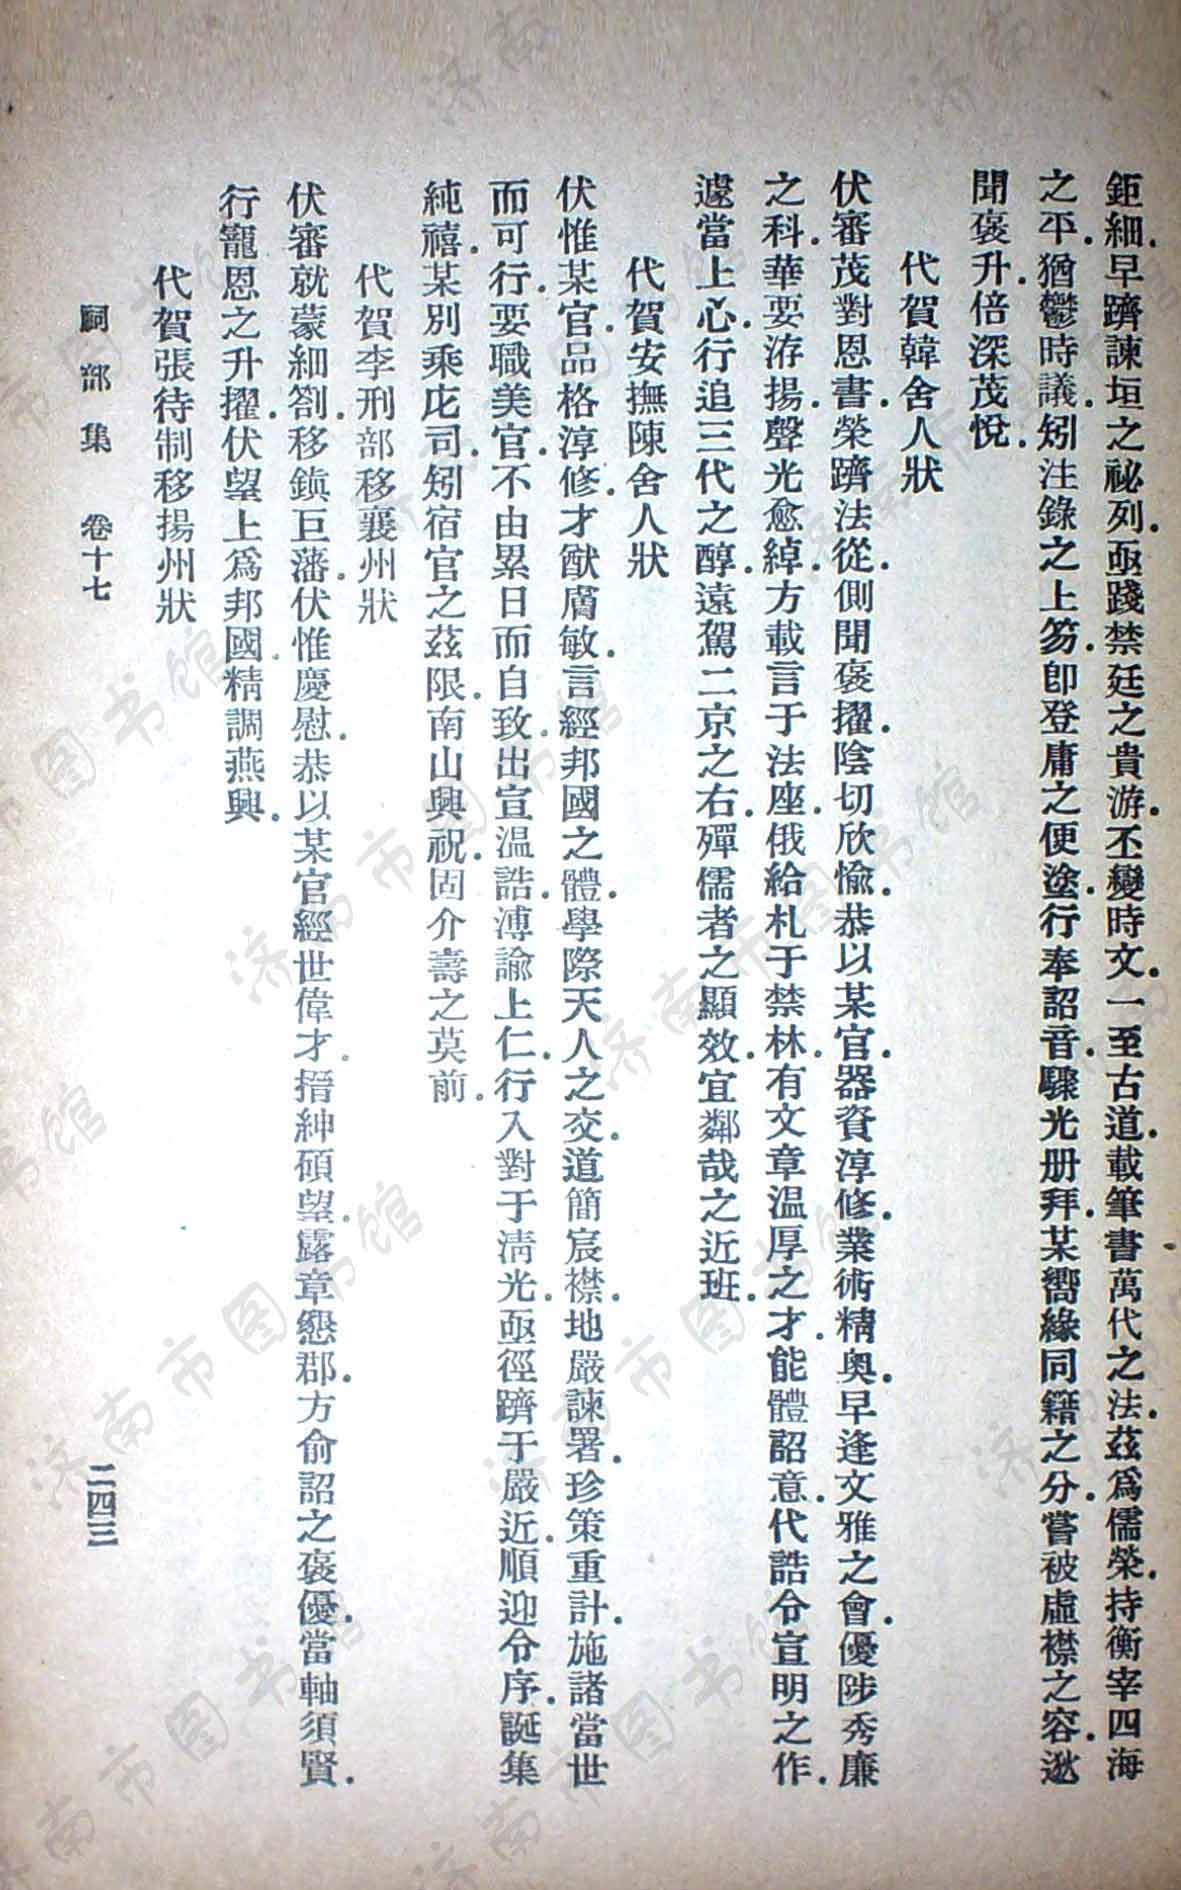 鉅細.早躋諫垣之祕列.亟踐禁廷之貴游.丕變時文.一至古道.載筆書萬代之法.茲爲儒榮.持衡宰四海
之平.猶鬱時議.矧注錄之上笏.卽登庸之便塗.行奉詔音.驟光册拜.某嚮緣同籍之分.嘗被虛襟之容.逖
聞褒升.倍深茂悅.
代賀韓舍人狀
伏審茂對恩書.榮躋法從.側聞褒擢.陰切欣愉.恭以某官.器資淳修.業術精奧.早逢文雅之會.優陟秀廉
之科.華要洊揚.聲光愈綽.方載言于法座.俄給札于禁林.有文章溫厚之才.能體詔意.代誥令宣明之作.
遽當上心.行追三代之醇.遠駕二京之右.殫儒者之顯效.宜鄰哉之近班.
代賀安撫陳舍人狀
伏惟某官.品格淳修.才猷膚敏.言經邦國之體.學際天人之交.道簡宸襟.地嚴諫署.珍策重計.施諸當世
而可行.要職美官.不由累日而自致.出宣溫誥.溥諭上仁.行入對于淸光.亟徑躋于嚴近.順迎令序.誕集
純禧.某別乘庀司.矧宿官之茲限.南山興祝.固介壽之莫前.
代賀李刑部移襄州狀
伏審就蒙細劄.移鎭巨藩.伏惟慶慰.恭以某官經世偉才.搢紳碩望.露章懇郡.方俞詔之褒優.當軸須賢.
行寵恩之升擢.伏望上爲邦國.精調燕興.
代賀張待制移揚州狀
祠部集 卷十七
二四三
济南市图书馆